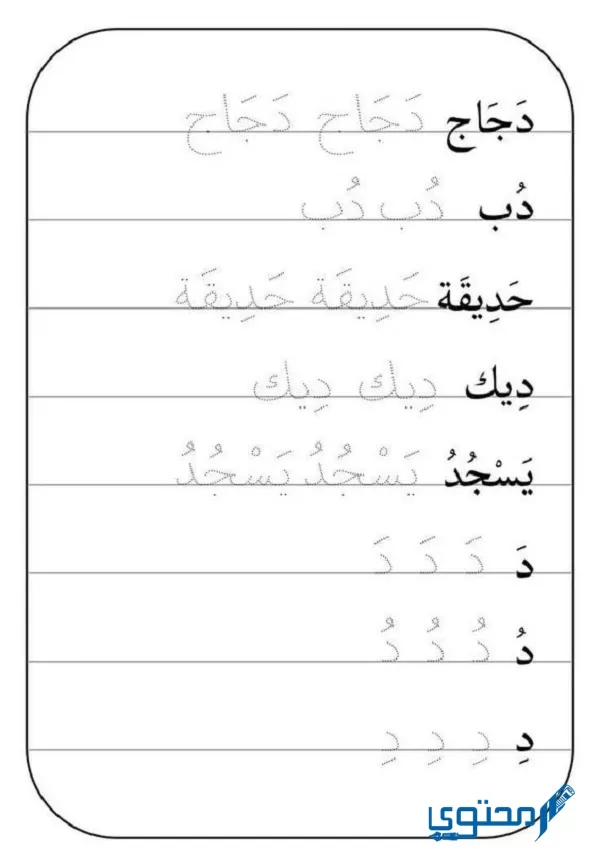 دَجَاج دَجَاج دَجَاج
دُب دُب دُب
حَدِيقَة حَدِيقَة حَدِيقَة
دِيك دِيك دِيك
يَسْجُدُ يَسْجُدُ يَسْجُدُ
دَ دَ دَ دَ
دُ دُ دُ دُ
دِ دِ دِ دِ
محتوى